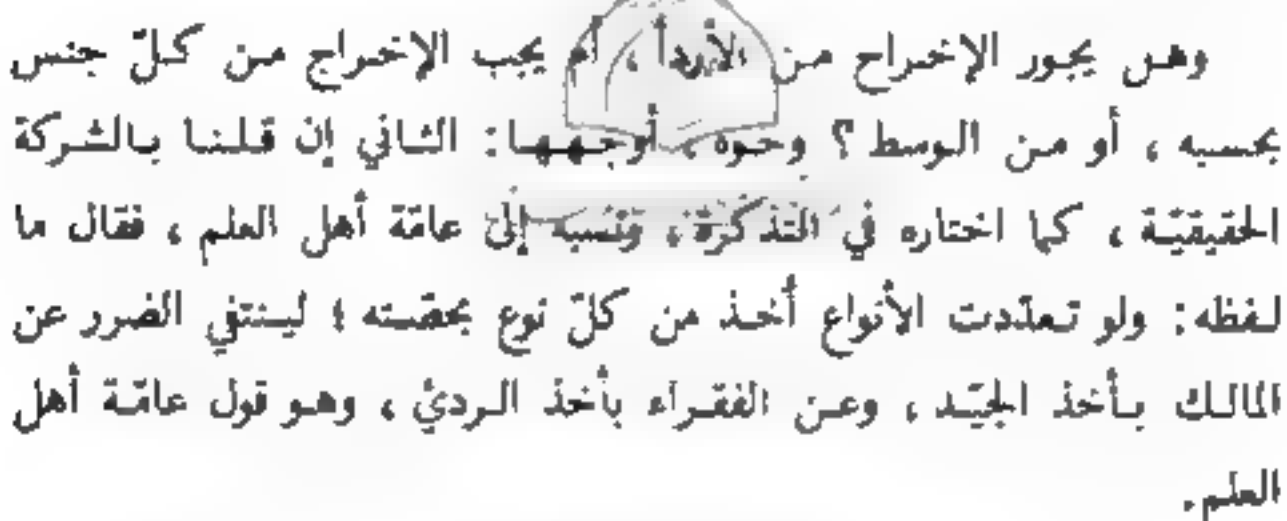 وهل يجوز الإخراج من الأردأ ، أم يجب الإخراج من كلّ جنس
بحسبه ، أو من الوسط ؟ وجوه ، أوجهها : الثاني إن قلنا بالشركة
الحقيقيّة ، كما اختاره في التذكرة ، ونسبه إلى عامّة أهل العلم ، فقال ما
لفظه : ولو تعدّدت الأنواع أخذ من كلّ نوع بحصّته ؛ لينتفي الضرر عن
المالك بأخذ الجيّد ، وعن الفقراء بأخذ الرديّ ، وهو قول عامّة أهل
العلم .